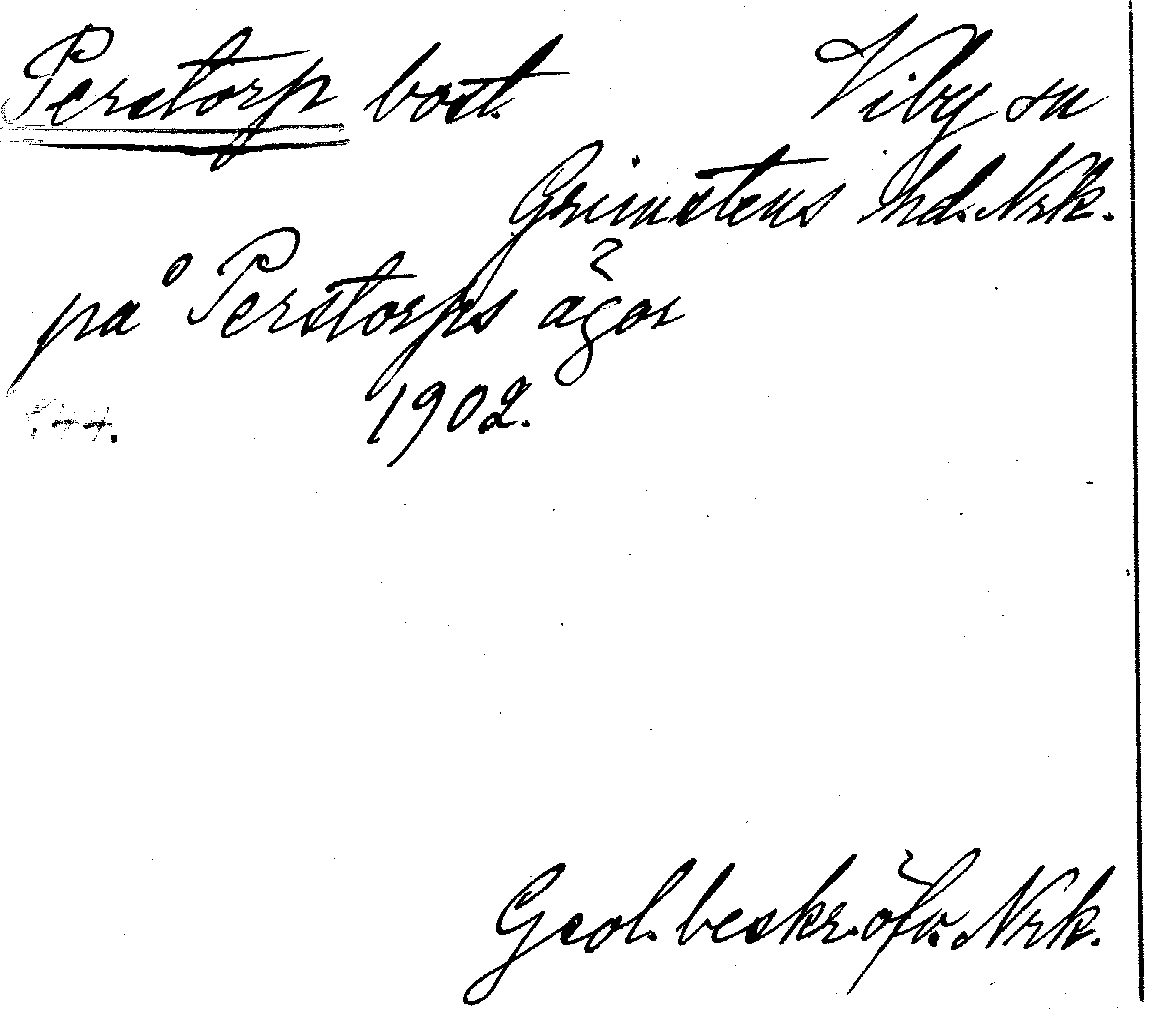 Perstorp bost. Viby sn
Grimstens hd. Nrk.
på Perstorps ägor
1902.
Geol. beskr. öfv. Nrk.